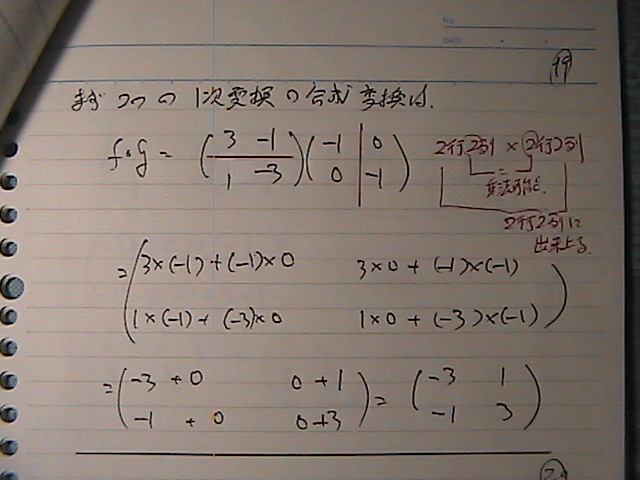 No.
DATE
19
まず2つの1次変換の合成変換は、
f∘g = (3 -1 / 1 -3)(-1 0 / 0 -1)
2行2列 × 2行2列
=
乗法可能
2行2列に
出来上る
= (3×(-1)+(-1)×0 3×0+(-1)×(-1)
1×(-1)+(-3)×0 1×0+(-3)×(-1))
= (-3+0 0+1 / -1+0 0+3) = (-3 1 / -1 3)